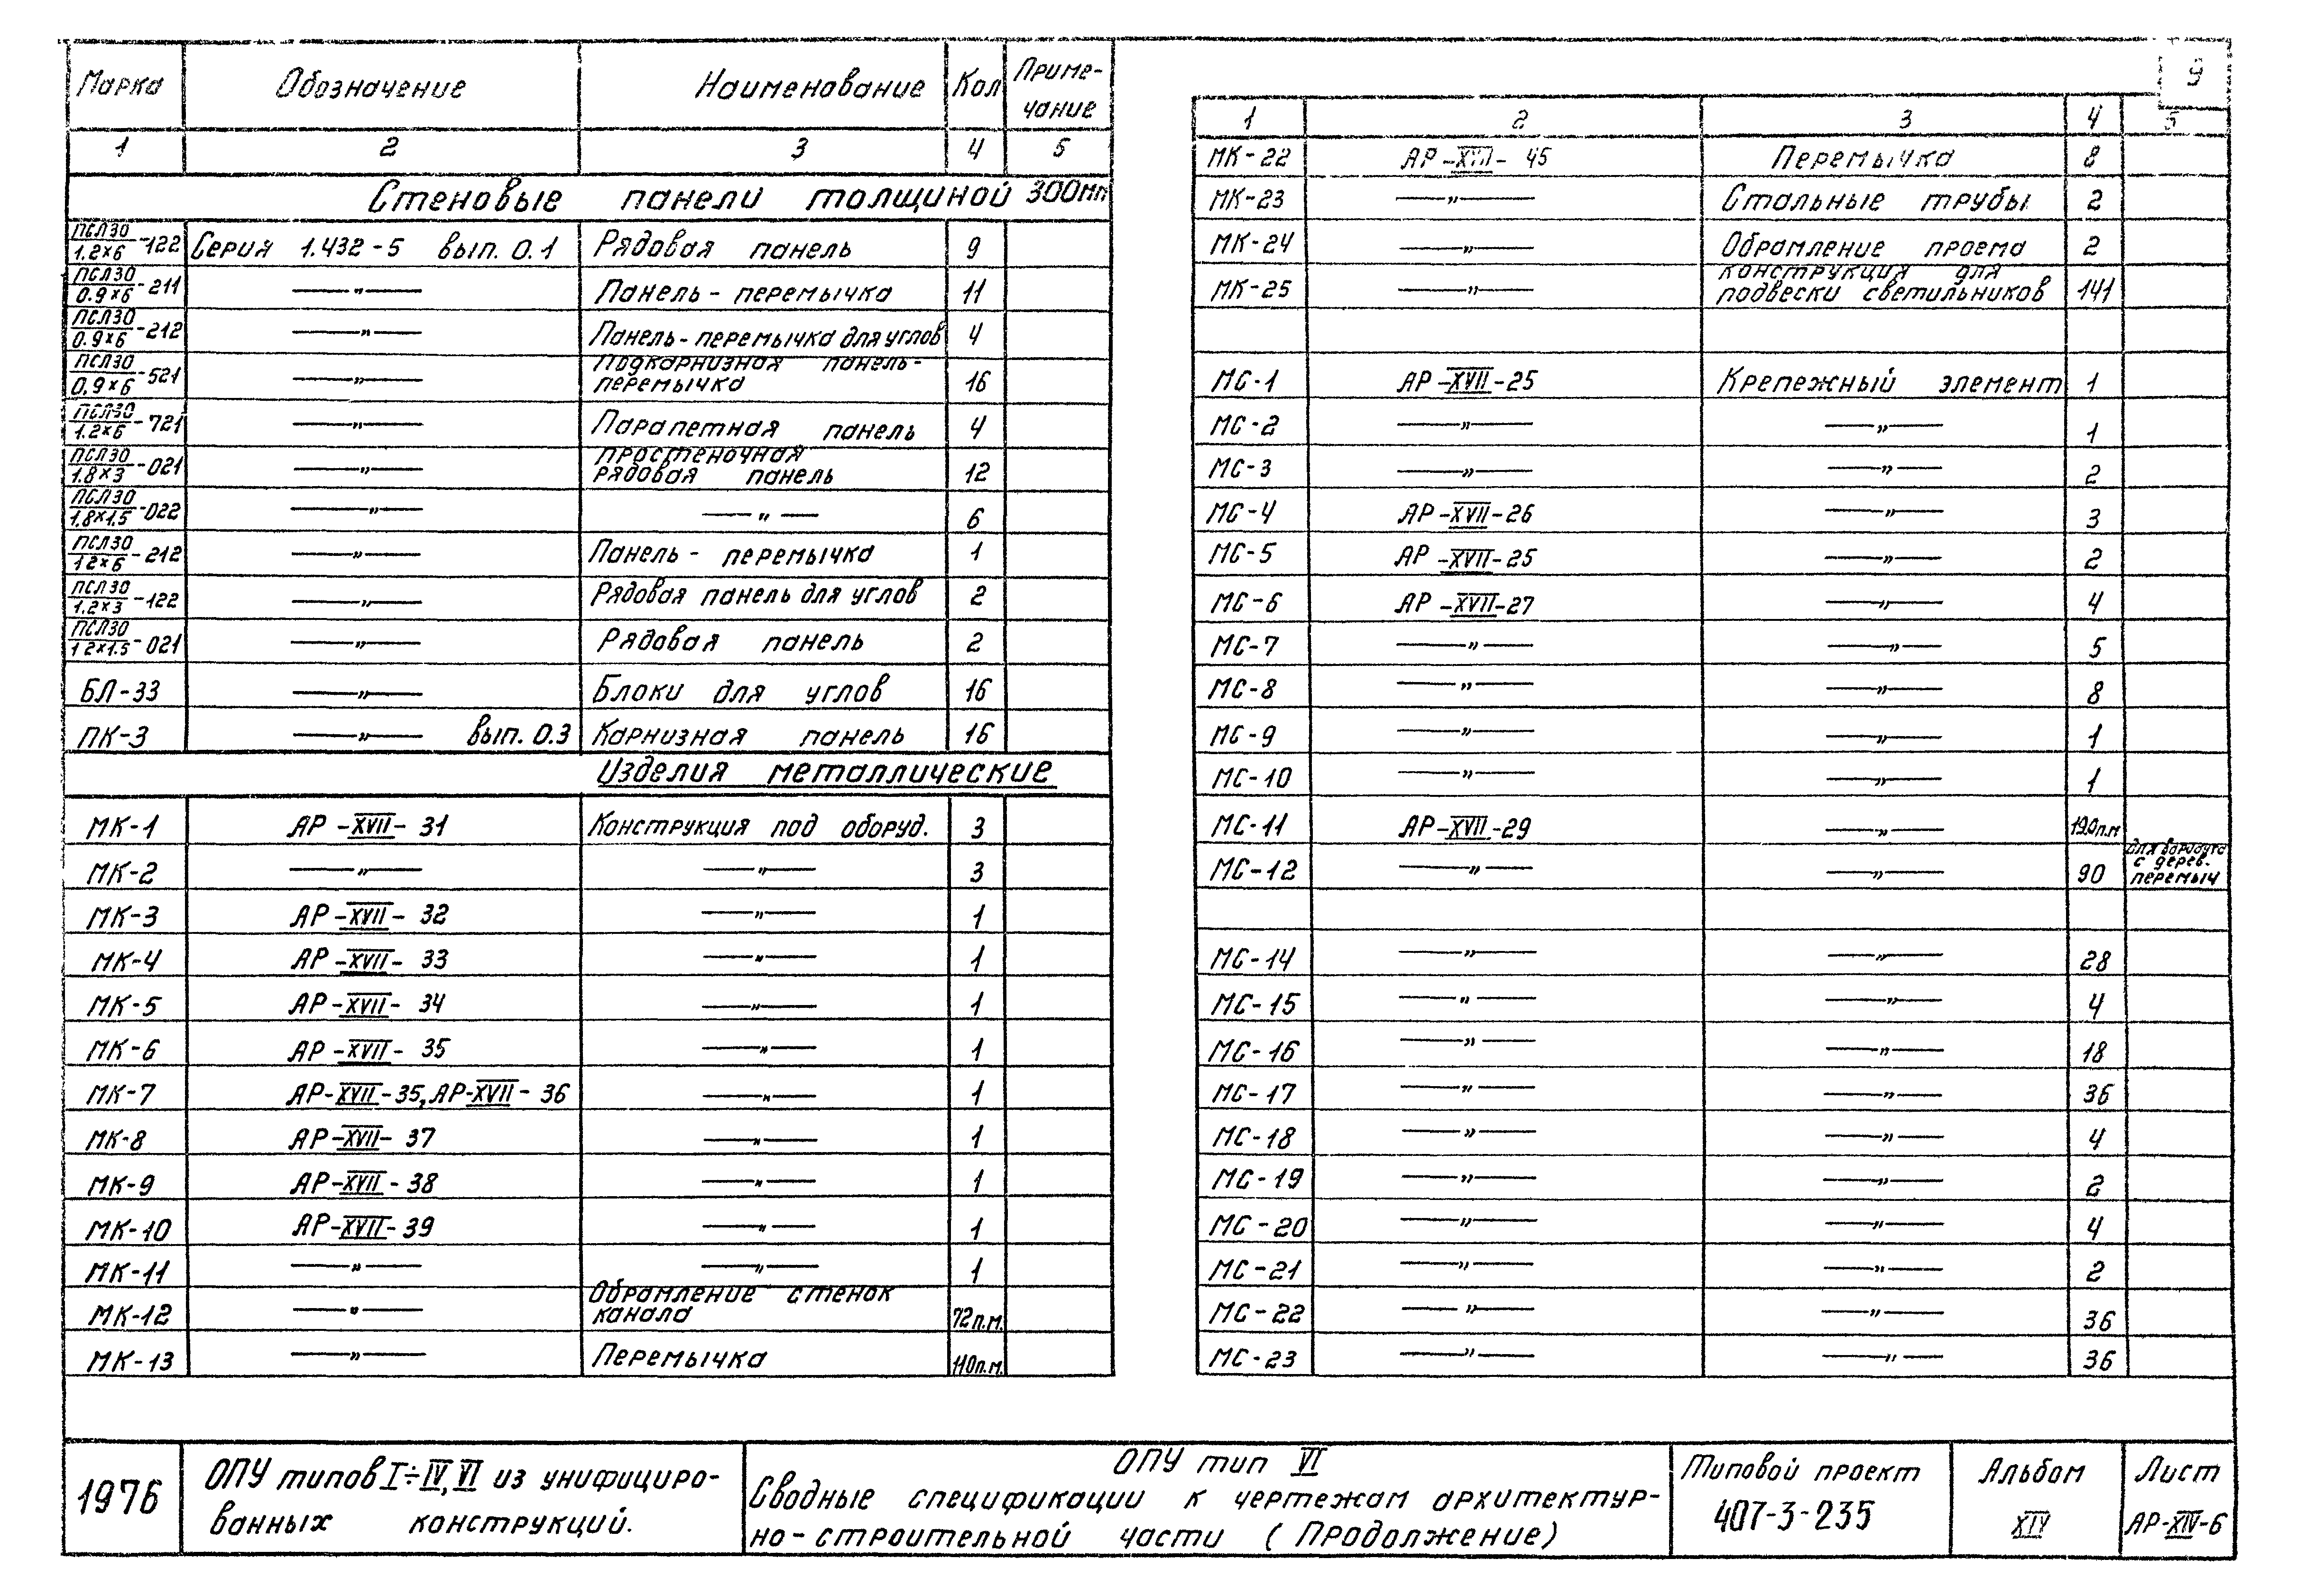 Марка Обозначение Наименование Кол Приме-
чание
1 2 3 4 5
Стеновые панели толщиной 300мм
ПСЛ30/1.2×6-122 Серия 1.432-5 вып. 0.1 Рядовая панель 9
ПСЛ30/0.9×6-211 —"— Панель-перемычка 11
ПСЛ30/0.9×6-212 —"— Панель-перемычка для углов 4
ПСЛ30/0,9×6-521 —"— Подкарнизная панель-
перемычка 16
ПСЛ30/1.2×6-721 —"— Парапетная панель 4
ПСЛ30/1.8×3-021 —"— Простеночная
рядовая панель 12
ПСЛ30/1,8×1,5-022 —"— —"— 6
ПСЛ30/12×6-212 —"— Панель-перемычка 1
ПСЛ30/1.2×3-122 —"— Рядовая панель для углов 2
ПСЛ30/12×1.5-021 —"— Рядовая панель 2
БЛ-33 —"— Блоки для углов 16
ПК-3 —"— вып. 0.3 Карнизная панель 16
Изделия металлические
МК-1 АР-XVII-31 Конструкция под оборуд. 3
МК-2 —"— —"— 3
МК-3 АР-XVII-32 —"— 1
МК-4 АР-XVII-33 —"— 1
МК-5 АР-XVII-34 —"— 1
МК-6 АР-XVII-35 —"— 1
МК-7 АР-XVII-35, АР-XVII-36 —"— 1
МК-8 АР-XVII-37 —"— 1
МК-9 АР-XVII-38 —"— 1
МК-10 АР-XVII-39 —"— 1
МК-11 —"— —"— 1
МК-12 —"— Обрамление стенок
канала 72п.м.
МК-13 —"— Перемычка 110п.м.
9
1 2 3 4 5
МК-22 АР-XVII-45 Перемычка 8
МК-23 —"— Стальные трубы 2
МК-24 —"— Обрамление проема 2
МК-25 —"— конструкция для
подвески светильников 141
МС-1 АР-XVII-25 Крепежный элемент 1
МС-2 —"— —"— 1
МС-3 —"— —"— 2
МС-4 АР-XVII-26 —"— 3
МС-5 АР-XVII-25 —"— 2
МС-6 АР-XVII-27 —"— 4
МС-7 —"— —"— 5
МС-8 —"— —"— 8
МС-9 —"— —"— 1
МС-10 —"— —"— 1
МС-11 АР-XVII-29 —"— 19.0п.м
МС-12 —"— —"— 90 для варианта
с дерев.
перемыч
МС-14 —"— —"— 28
МС-15 —"— —"— 4
МС-16 —"— —"— 18
МС-17 —"— —"— 36
МС-18 —"— —"— 4
МС-19 —"— —"— 2
МС-20 —"— —"— 4
МС-21 —"— —"— 2
МС-22 —"— —"— 36
МС-23 —"— —"— 36
1976
ОПУ типов I÷IV, VI из унифициро-
ванных конструкций.
ОПУ тип VI
Сводные спецификации к чертежам архитектур-
но-строительной части (Продолжение)
Типовой проект
407-3-235
Альбом
XIV
Лист
АР-XIV-6